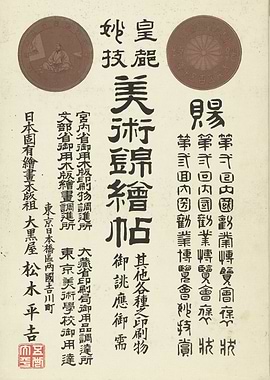 賜
回内國勸業博覽會褒状
回内國勸業博覽會褒状
回内國勸業博覽會妙技賞
皇都
妙技
美術錦繪帖
其他各種之印刷物
御誂應御需
宮内省御用木版印刷物調進所
文部省御用木版繪畫調進所
大藏省印刷局御用品調達所
東京美術學校御用達
東京日本橋區両國吉川町
日本固有繪畫木版祖 大黒屋 松木平吉